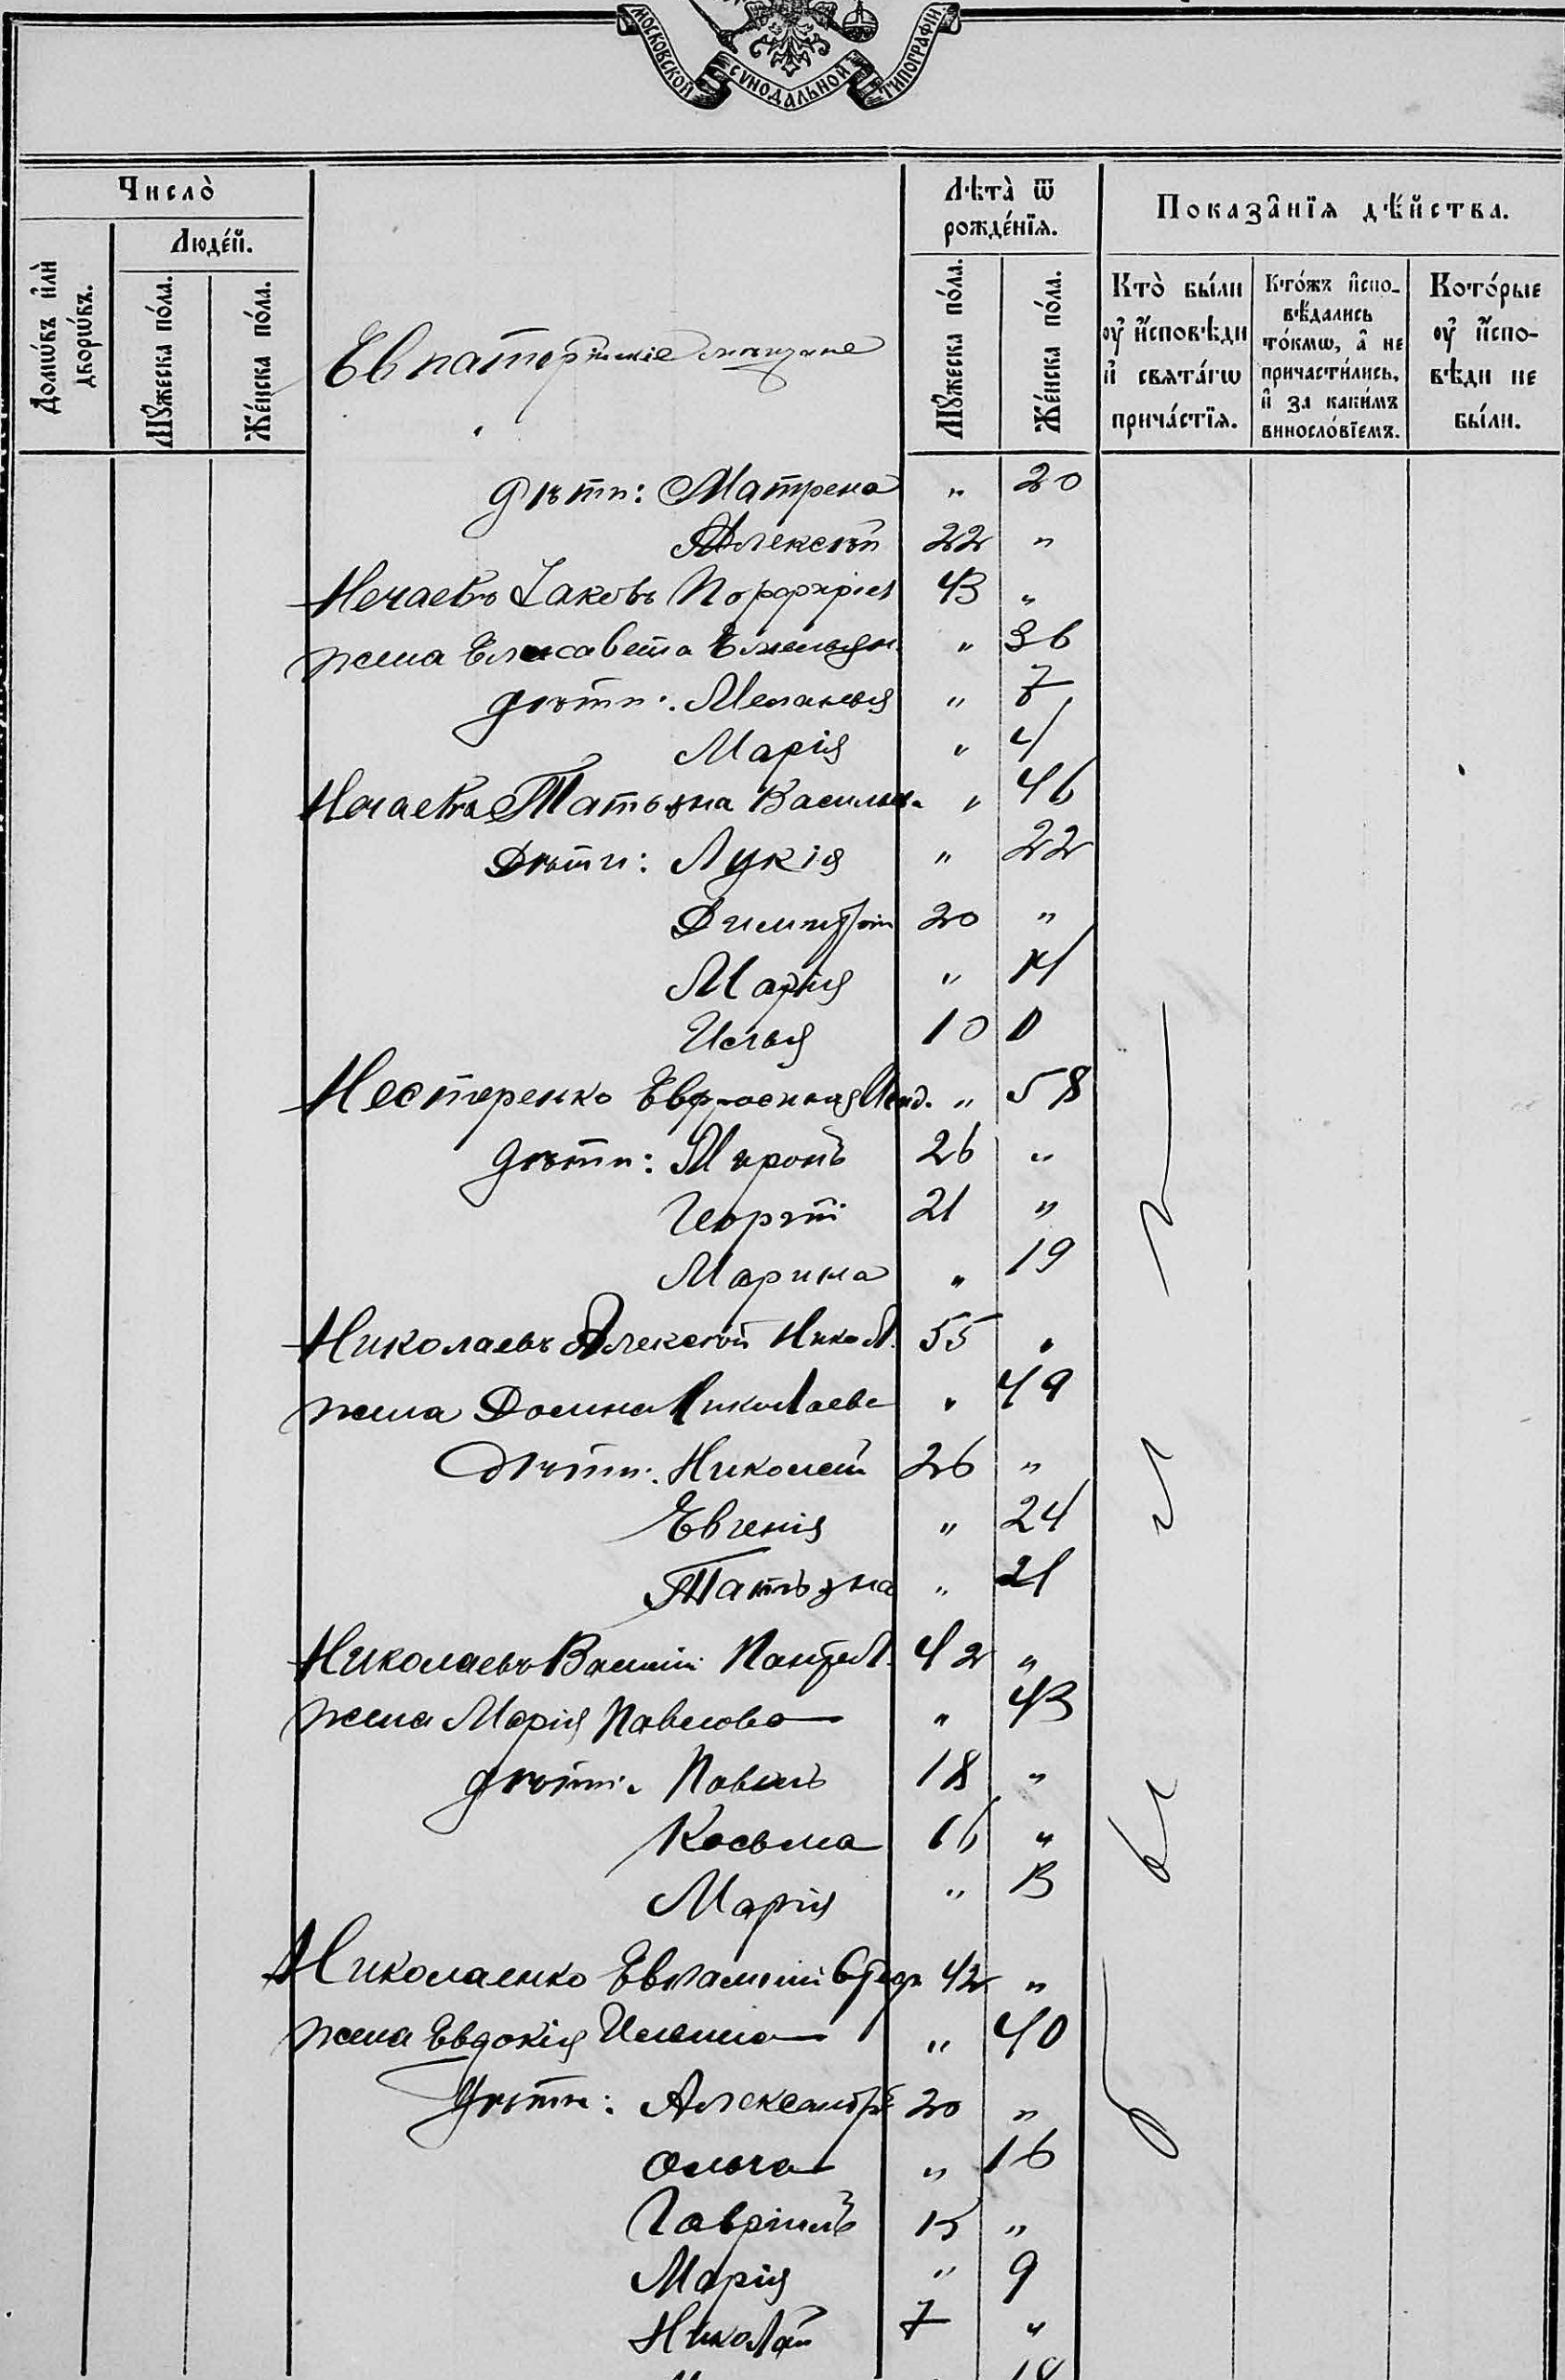 МОСКОВСКОЙ СУНОДАЛЬНОЙ ТИПОГРАФІИ
Число̀
Людей.
Домѡвъ и҆лѝ дворѡвъ.
Мꙋжеска пола.
Же́нска пола.
Евпаторійскіе мѣщане
Лѣта̀ ѿ рожде́нїѧ.
Мꙋжеска пола.
Же́нска пола.
Показа̂нїѧ дѣ́йства.
Кто̀ бы́ли оу҆ и҆́сповѣди и҆ свѧта́гѡ прича́стїѧ.
Кто́жъ и҆спо-вѣ́дались то́кмѡ, а҆ не причасти́лись, и҆ за каки́мъ виносло́вїемъ.
Кото́рые оу҆ и҆́спо-вѣди не бы́ли.
дѣти: Матрена " 20
Алексѣй 22 "
Нечаевъ Іаковъ Порфиріев 43 "
жена Елисавета Емельян. " 36
дѣти: Меланья " 7
Марія " 4
Нечаева Татьяна Васильев. " 46
Дѣти: Лукія " 22
Димитрій 20 "
Марія " 14
Илья 10
Нестеренко Евфросинія " 58
дѣти: Миронъ 26 "
Георгій 21 "
Марина " 19
Николаевъ Алексѣй Никол. 55 "
жена Домна Николаева " 49
Дѣти: Николай 26 "
Евгенія " 24
Татьяна " 21
Николаевъ Василій Пантел. 42 "
жена Марія Павлова " 43
дѣти: Павелъ 18 "
Косьма 16 "
Марія " 13
Николаенко Евлампій 42 "
жена Евдокія Ильина " 40
Дѣти: Александръ 20 "
Ольга " 16
Гавріилъ 15 "
Марія " 9
Николай 7 "